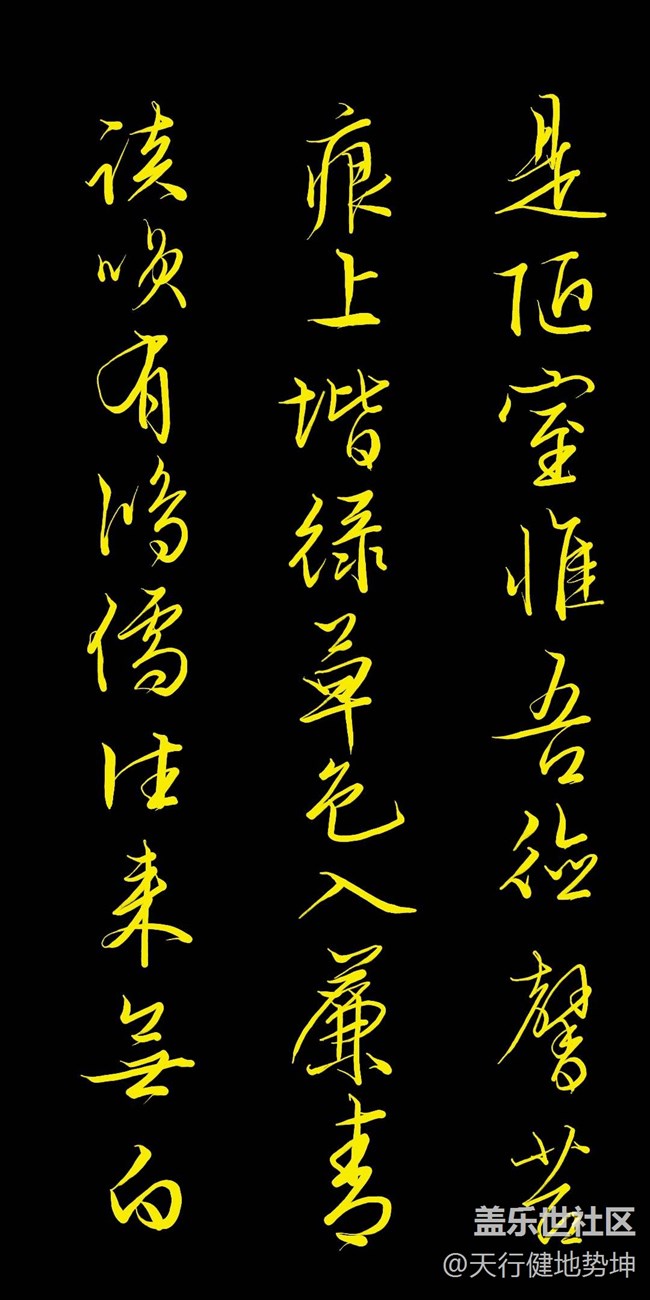 是陋室惟吾德馨苔
痕上堦绿草色入簾青
谈咲有鸿儒往来無白
盖乐世社区
@天行健地势坤